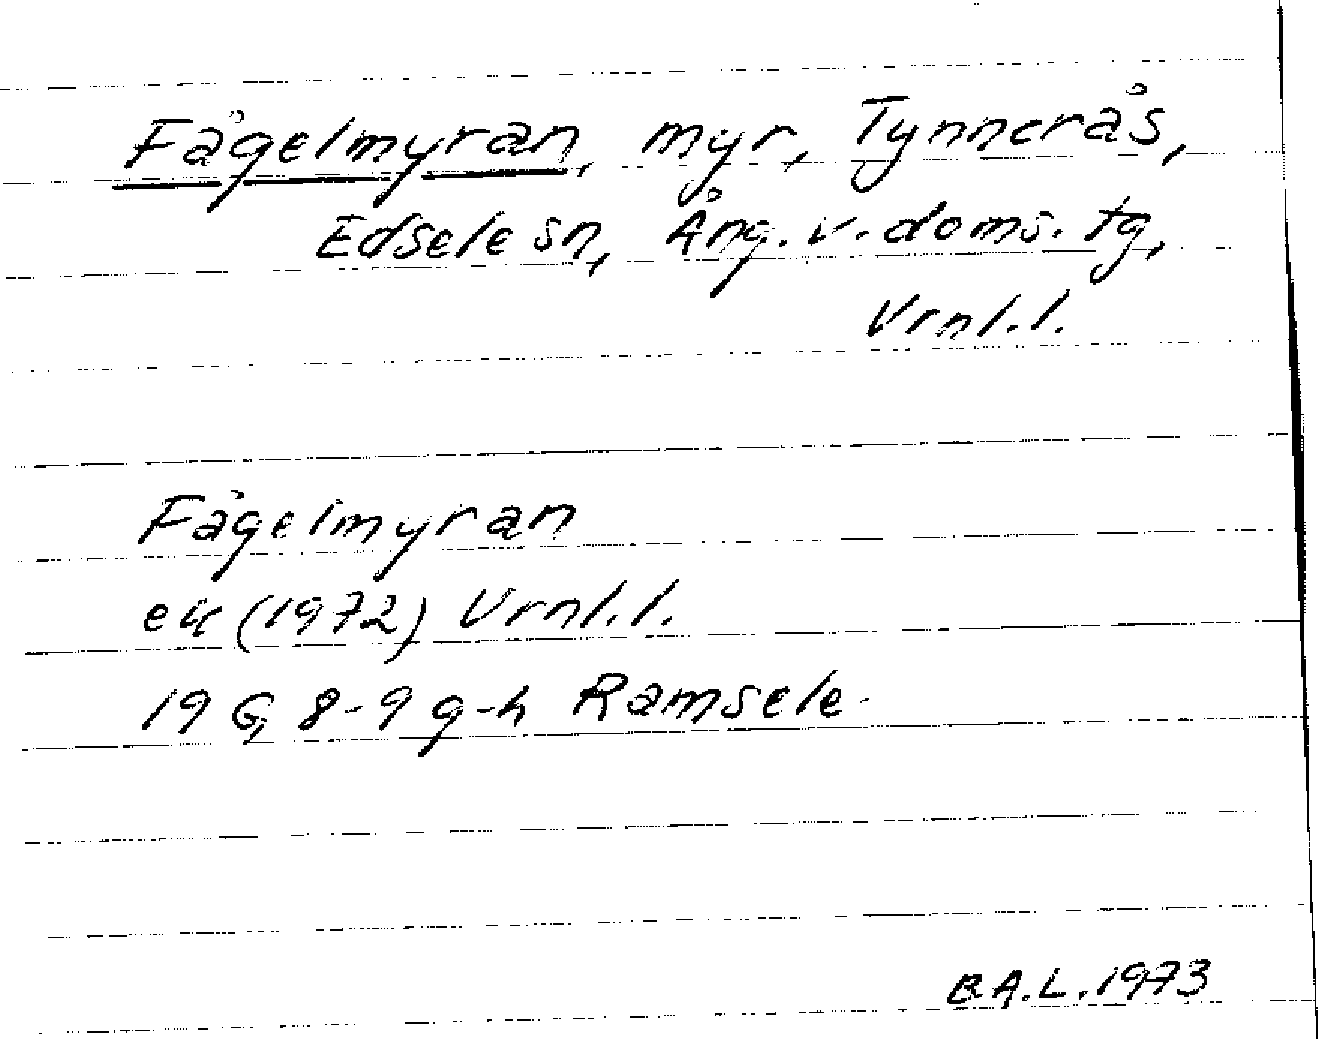 Fågelmyran, myr, Tynnerås,
Edsele sn, Ång. v. doms. tg,
Vrnl.l.
Fågelmyran
ek (1972) Vrnl.l.
19 G, 8-9 g-h Ramsele
B.A.L. 1973